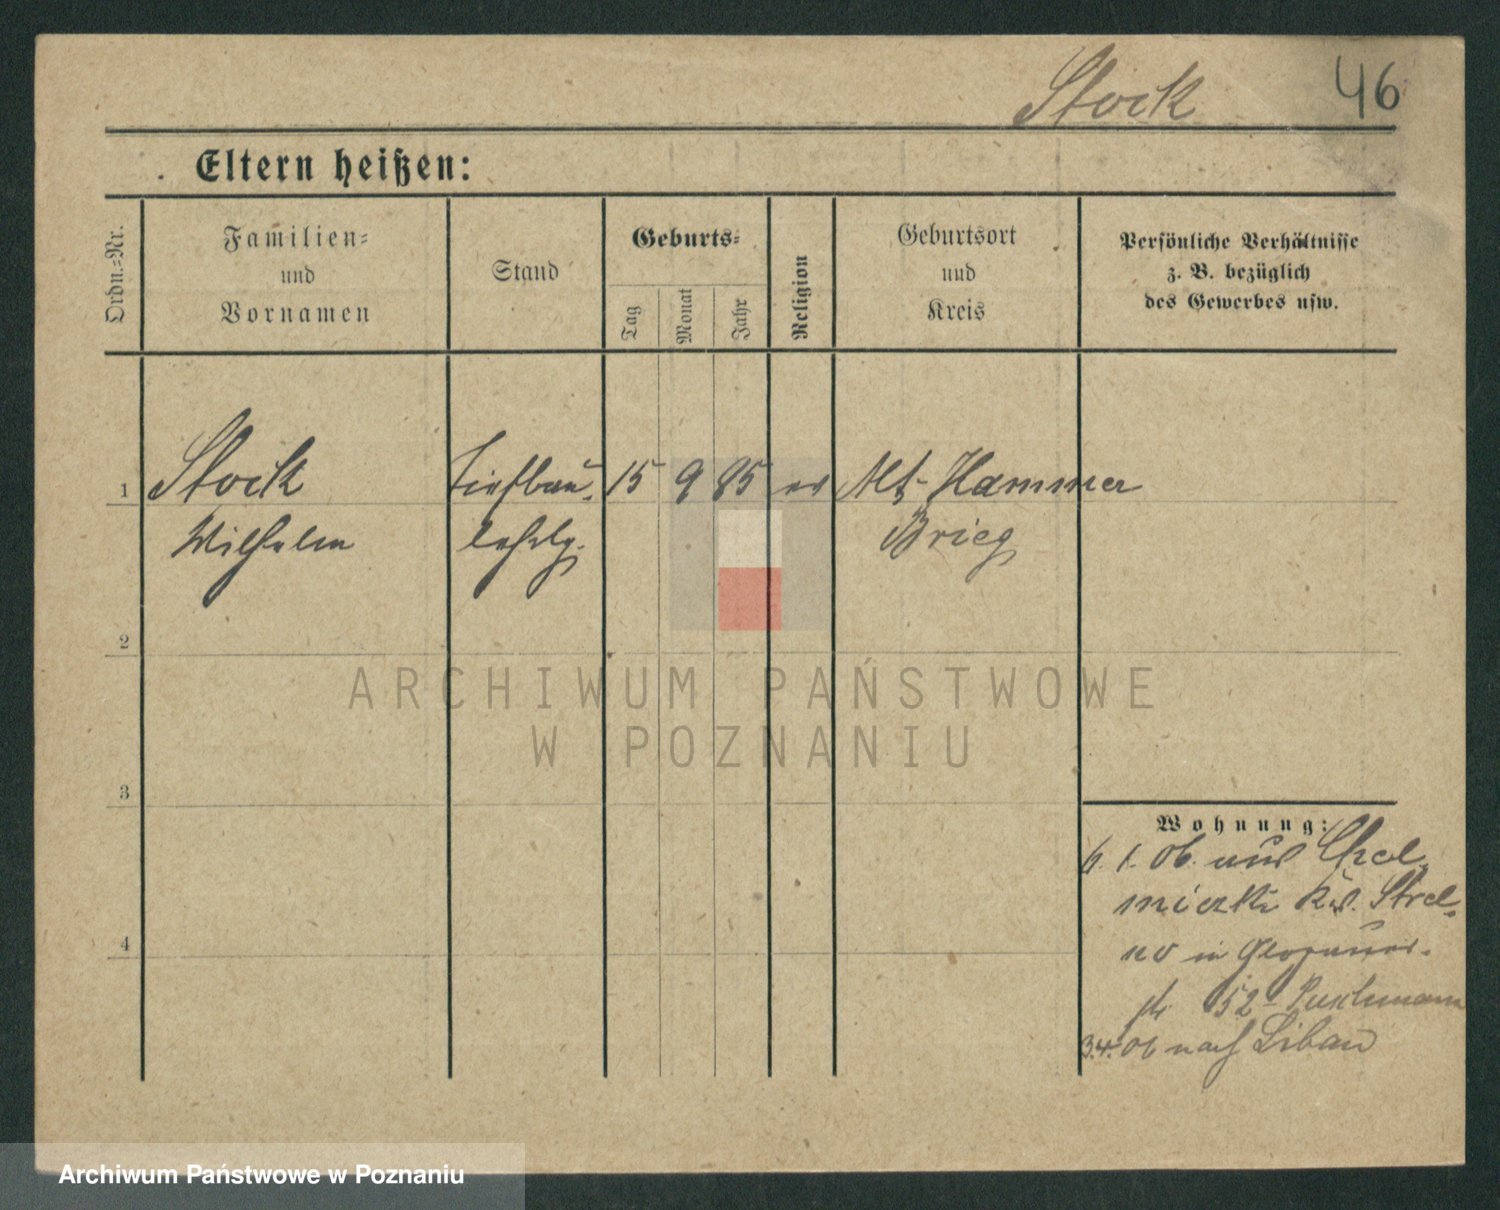 Stock 46
Eltern heißen:
Ordn.-Nr.
Familien-
und
Vornamen
Stand
Geburts-
Tag
Monat
Jahr
Religion
Geburtsort
und
Kreis
Persönliche Verhältnisse
z. B. bezüglich
des Gewerbes usw.
1 Stock Tiefbau- 15 9 85 ev Alt-Hammer
Wilhelm Brieg
2
3
4
ARCHIWUM PAŃSTWOWE
W POZNANIU
Wohnung:
1. 06. aus
Kr. Strel-
no in
52
3.4.06 nach Libau
Archiwum Państwowe w Poznaniu